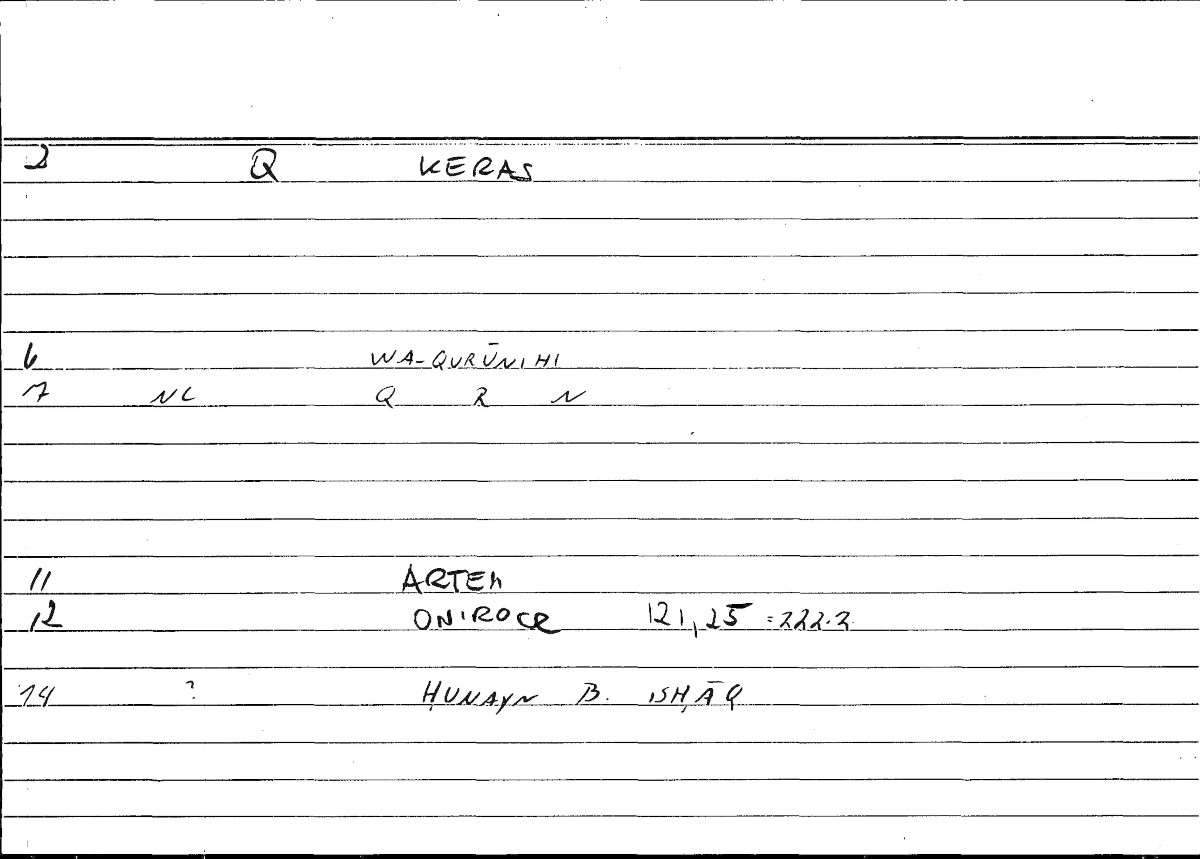 2 Q KERAS
6 WA-QURŪNIHI
7 NC Q R N
11 ARTEM
12 ONIROCR 121,25 = 222.2
14 ? ḤUNAYN B. ISḤĀQ